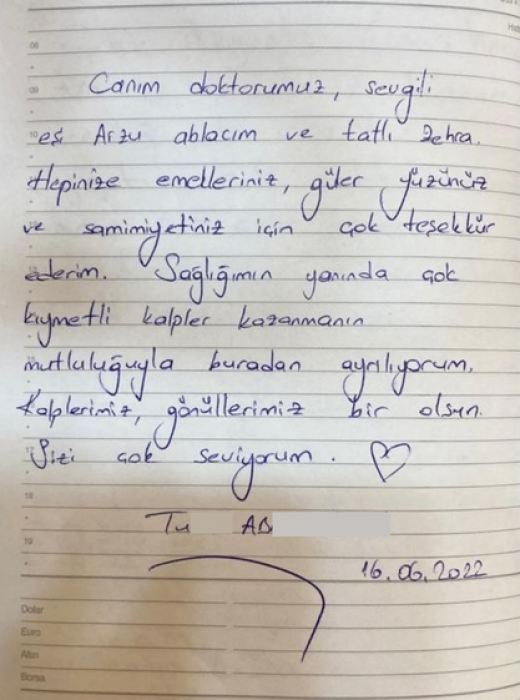 Canım doktorumuz, sevgili
eşi Arzu ablacım ve tatlı Zehra.
Hepinize emelleriniz, güler yüzünüz
ve samimiyetiniz için çok teşekkür
ederim. Sağlığımın yanında çok
kıymetli kalpler kazanmanın
mutluluğuyla buradan ayrılıyorum.
Kalplerimiz, gönüllerimiz bir olsun.
Sizi çok seviyorum.
18
Tu AB
19
16.06.2022
Dolar
Euro
Altın
Borsa